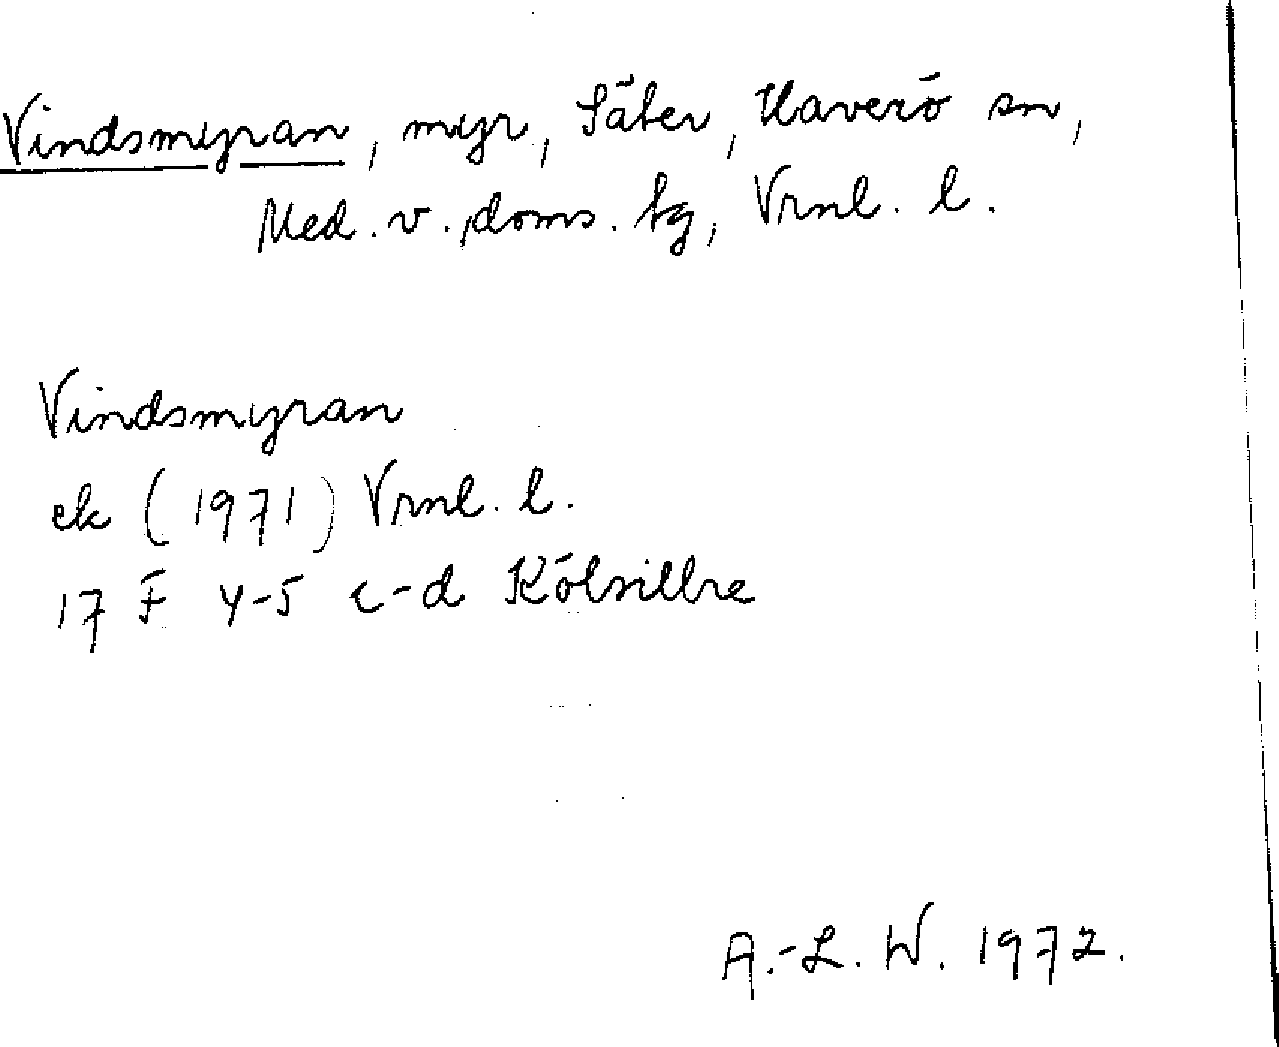 Vindsmyran, myr, Säter, Haverö sn,
Med. v. doms. tg, Vrnl. l.
Vindsmyran
ek (1971) Vrnl. l.
17 F 4-5 c-d Kölsillre
A.-L. W. 1972.